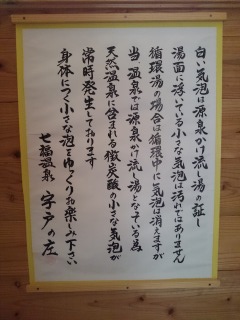 白い気泡は源泉かけ流し湯の証し
湯面に浮いている小さな気泡は汚れではありません
循環湯の場合は循環中に気泡は消えますが
当温泉では源泉かけ流し湯となっている為
天然温泉に含まれる微炭酸の小さな気泡が
常時発生しております
身体につく小さな泡をゆっくりお楽しみ下さい
七福温泉 宇戸の庄